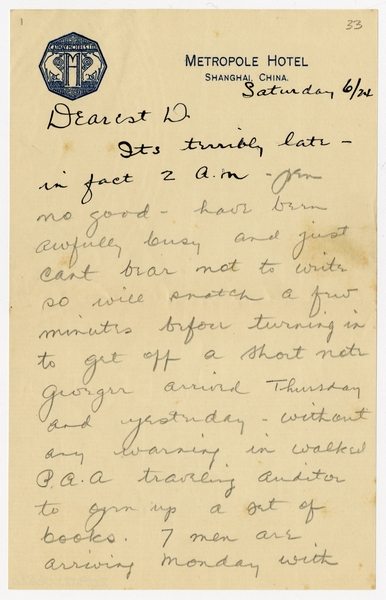 1
33
CATHAY HOTELS LTD
M H
METROPOLE HOTEL
SHANGHAI, CHINA.
Saturday 6/24
Dearest D.
Its terribly late -
in fact 2 a.m - pen
no good - have been
awfully busy and just
cant bear not to write
so will snatch a few
minutes before turning in
to get off a short note
arrived Thursday
and yesterday - without
any warning in walked
P.A.A traveling auditor
to open up a set of
books. 7 men are
arriving Monday with